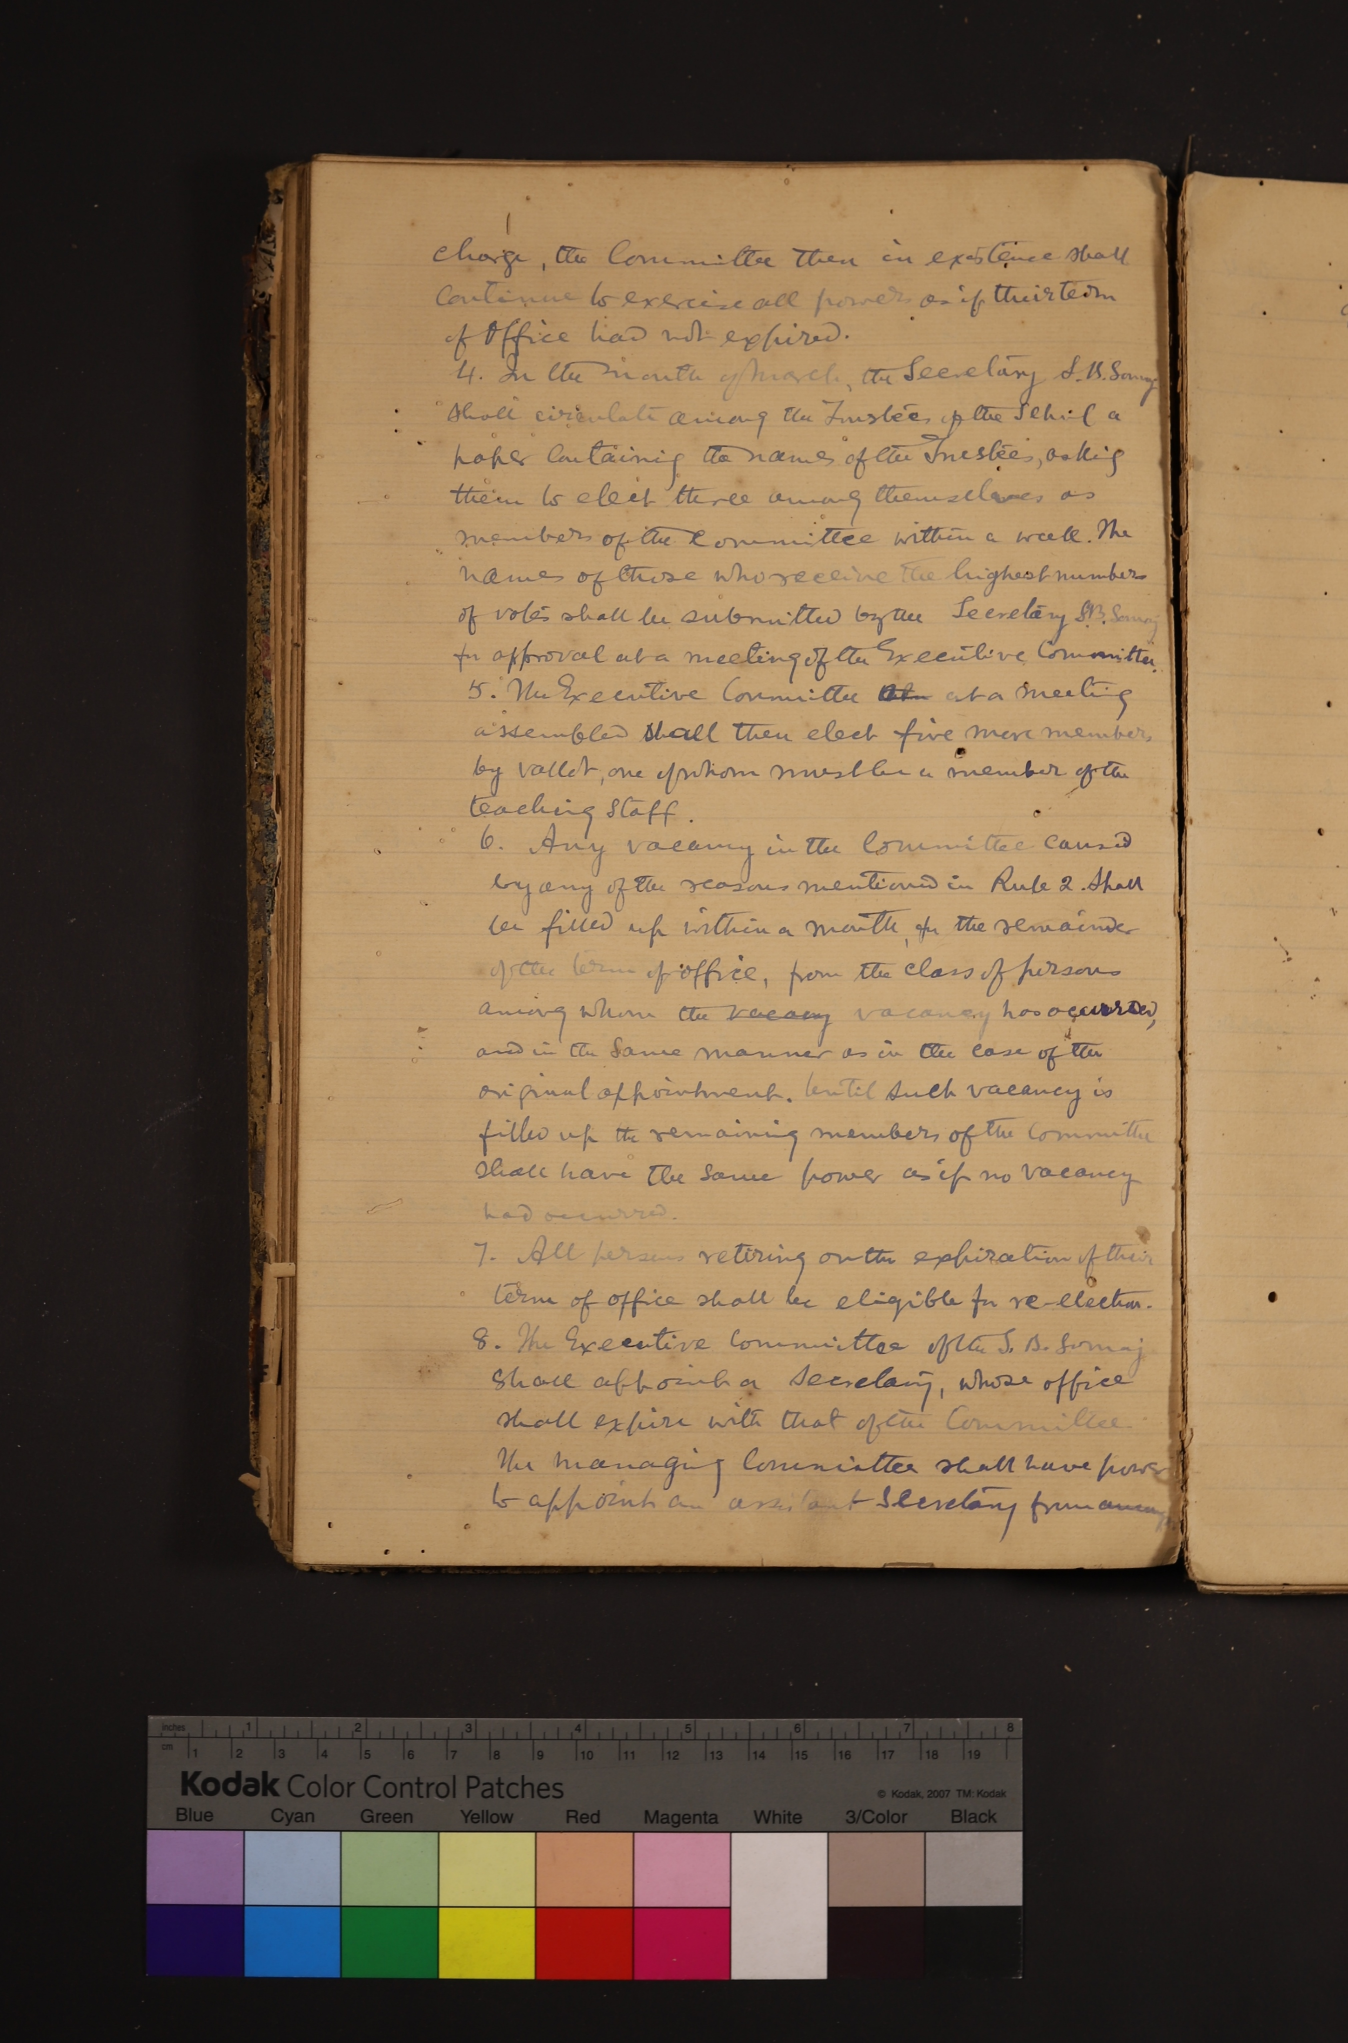 charge, the Committee then in existence shall
continue to exercise all powers as if their term
of Office had not expired.
4. In the month of March, the Secretary S.B. Somaj
shall circulate among the Trustees of the School a
paper containing the names of the Trustees, asking
them to elect three among themselves as
members of the Committee within a week. The
names of those who receive the highest numbers
of votes shall be submitted by the Secretary S.B. Somaj
for approval at a meeting of the Executive Committee.
5. The Executive Committee at a meeting
assembled shall then elect five more members
by vallot, one of whom must be a member of the
teaching staff.
6. Any vacancy in the Committee caused
by any of the reasons mentioned in Rule 2. Shall
be filled up within a month, for the remainder
of the term of office, from the class of persons
among whom the vacancy vacancy has occurred,
and in the same manner as in the case of the
original appointment. Until such vacancy is
filled up the remaining members of the Committee
shall have the same power as if no vacancy
had occurred.
7. All persons retiring on the expiration of their
term of office shall be eligible for re-election.
8. The Executive Committee of the S. B. Somaj
shall appoint a Secretary, whose office
shall expire with that of the Committee.
The managing Committee shall have power
to appoint an assistant Secretary from among
inches 1 2 3 4 5 6 7 8
cm 1 2 3 4 5 6 7 8 9 10 11 12 13 14 15 16 17 18 19
Kodak Color Control Patches
© Kodak, 2007 TM: Kodak
Blue Cyan Green Yellow Red Magenta White 3/Color Black